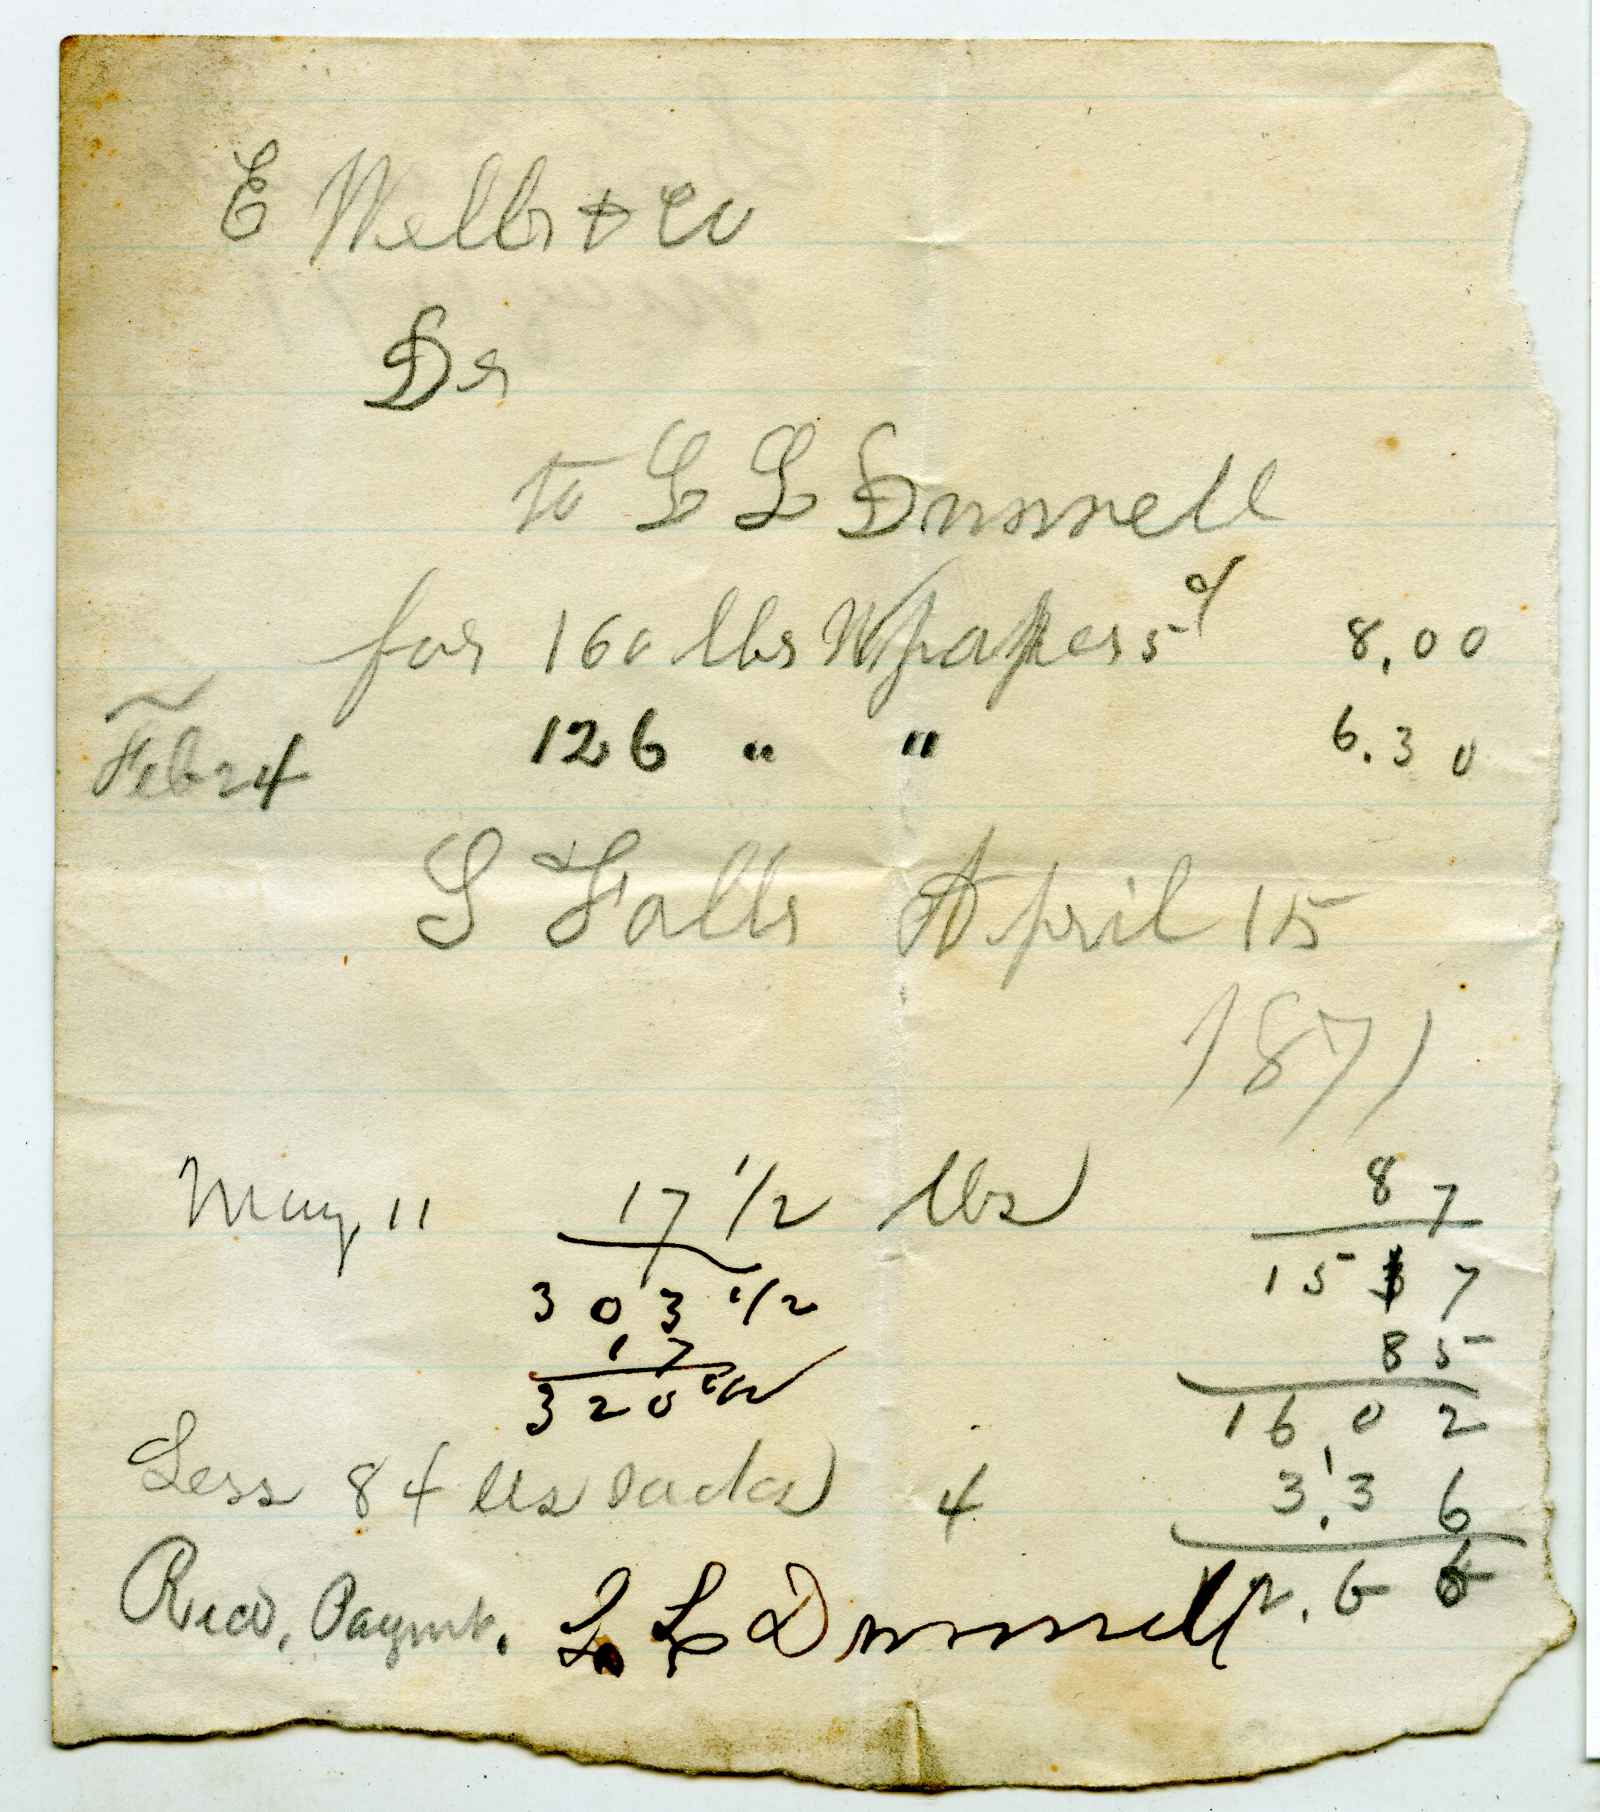 E Wells & Co
Dr
to L L Dunnell
for 160 lbs W paper 5 c/ 8,00
Feb 24 126 " " 6.30
S Falls April 15
1871
May 11 17 1/2 lbs 87
303 1/2 15 7
17 85
320 1/2 16,02
Less 84 lbs sacks 4 3,36
Recd, Paymt. L L Dunnell 12.66